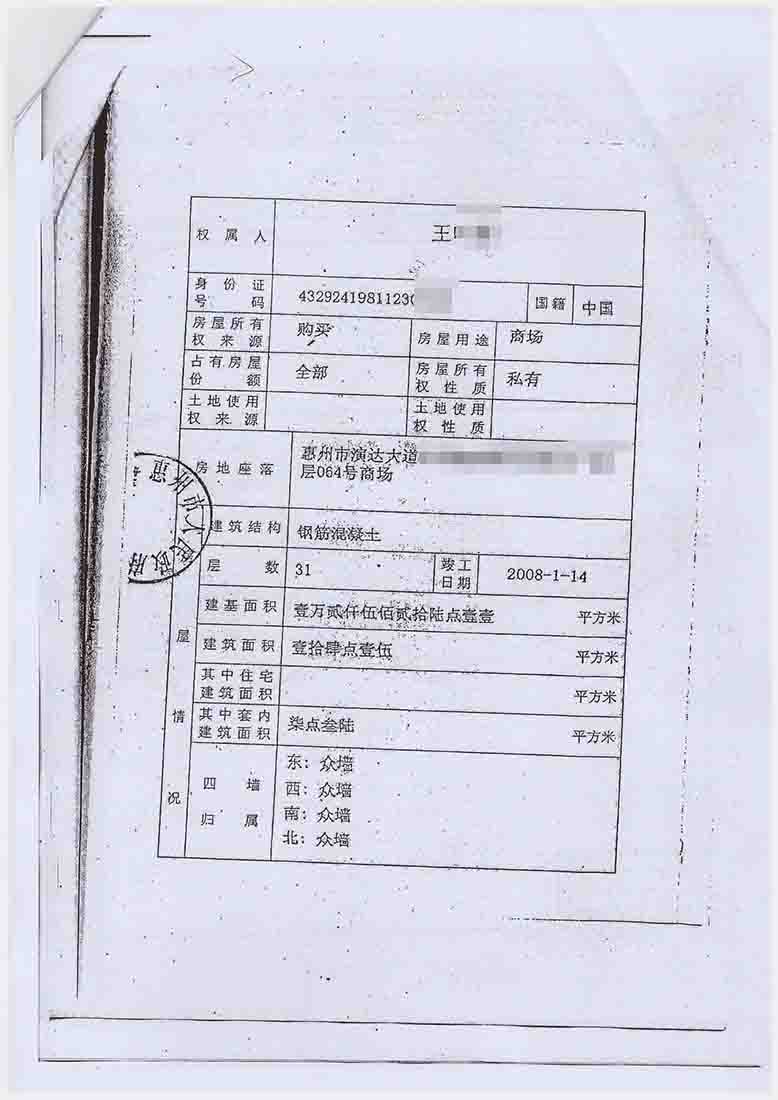 权属人
王
身份证
号码
4329241981123
国籍
中国
房屋所有
权来源
购买
房屋用途
商场
占有房屋
份额
全部
房屋所有
权性质
私有
土地使用
权来源
土地使用
权性质
房地座落
惠州市演达大道
层064号商场
惠州市人民政府
建筑结构
钢筋混凝土
层数
31
竣工
日期
2008-1-14
建基面积
壹万贰仟伍佰贰拾陆点壹壹
平方米
屋
情
况
建筑面积
壹拾肆点壹伍
平方米
其中住宅
建筑面积
平方米
其中套内
建筑面积
柒点叁陆
平方米
四墙
归属
东：众墙
西：众墙
南：众墙
北：众墙